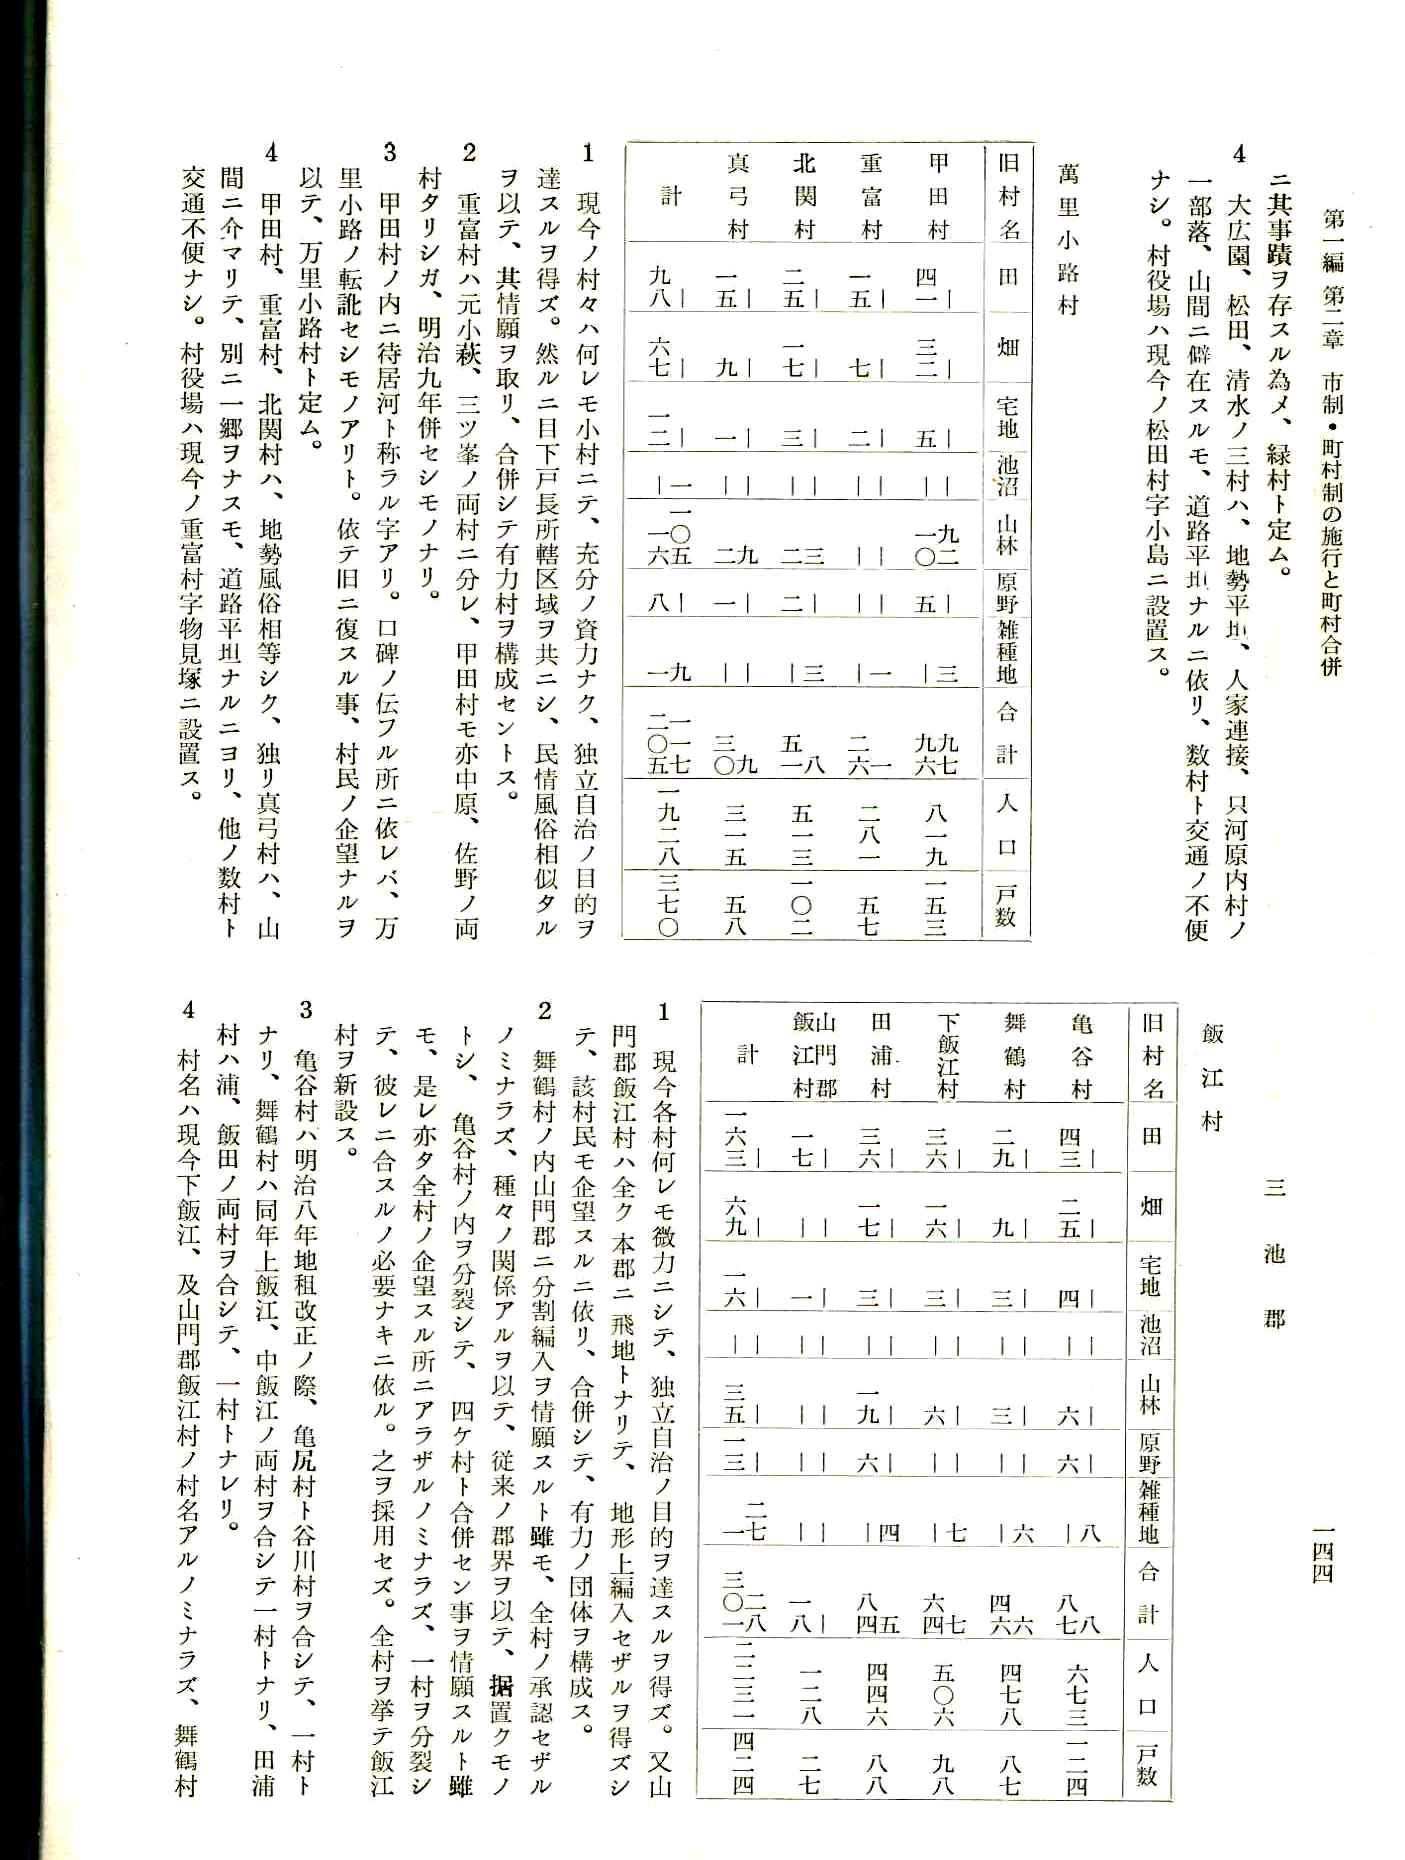 第一編 第二章 市制・町村制の施行と町村合併
一四四
ニ其事蹟ヲ存スル為メ、緑村ト定ム。
4 大広園、松田、清水ノ三村ハ、地勢平坦、人家連接、只河原内村ノ
一部落、山間ニ僻在スルモ、道路平坦ナルニ依リ、数村ト交通ノ不便
ナシ。村役場ハ現今ノ松田村字小島ニ設置ス。
萬里小路村
旧村名 田 畑 宅地 池沼 山林 原野 雑種地 合計 人口 戸数
甲田村 | 四一 | 三二 | 五 | | 九二 一〇 | 五 三 | 九七 九六 八一九 一五三
重富村 | 一五 | 七 | 二 | | | | | | 一 | 一 二六 二八一 五七
北関村 | 二五 | 一七 | 三 | | 三 二 | 二 三 | 八 五一 五一三 一〇二
真弓村 | 一五 | 九 | 一 | | 九 二 | 一 | | 九 三〇 三一五 五八
計 | 九八 | 六七 | 一二 一 | 一〇五 一六 | 八 九 一 一一七 二〇五 一九二八 三七〇
1 現今ノ村々ハ何レモ小村ニテ、充分ノ資力ナク、独立自治ノ目的ヲ
達スルヲ得ズ。然ルニ目下戸長所轄区域ヲ共ニシ、民情風俗相似タル
ヲ以テ、其情願ヲ取リ、合併シテ有力村ヲ構成セントス。
2 重富村ハ元小萩、三ツ峯ノ両村ニ分レ、甲田村モ亦中原、佐野ノ両
村タリシガ、明治九年併セシモノナリ。
3 甲田村ノ内ニ待居河ト称ラル字アリ。口碑ノ伝フル所ニ依レバ、万
里小路ノ転訛セシモノアリト。依テ旧ニ復スル事、村民ノ企望ナルヲ
以テ、万里小路村ト定ム。
4 甲田村、重富村、北関村ハ、地勢風俗相等シク、独リ真弓村ハ、山
間ニ介マリテ、別ニ一郷ヲナスモ、道路平坦ナルニヨリ、他ノ数村ト
交通不便ナシ。村役場ハ現今ノ重富村字物見塚ニ設置ス。
三池郡
飯江村
旧村名 田 畑 宅地 池沼 山林 原野 雑種地 合計 人口 戸数
亀谷村 | 四三 | 二五 | 四 | | | 六 | 六 八 | 八 八七 六七三 一二四
舞鶴村 | 二九 | 九 | 三 | | | 三 | | 六 | 六 四六 四七八 八七
下飯江村 | 三六 | 一六 | 三 | | | 六 | | 七 | 七 六四 五〇六 九八
田浦村 | 三六 | 一七 | 三 | | | 一九 | 六 四 | 五 八四 四四六 八八
山門郡飯江村 | 一七 | | | 一 | | | | | | | | | 一八 一二八 二七
計 | 一六三 | 六九 | 一六 | | | 三五 | 一三 二七 一 二八 三〇一 二二三一 四二四
1 現今各村何レモ微力ニシテ、独立自治ノ目的ヲ達スルヲ得ズ。又山
門郡飯江村ハ全ク本郡ニ飛地トナリテ、地形上編入セザルヲ得ズシ
テ、該村民モ企望スルニ依リ、合併シテ、有力ノ団体ヲ構成ス。
2 舞鶴村ノ内山門郡ニ分割編入ヲ情願スルト雖モ、全村ノ承認セザル
ノミナラズ、種々ノ関係アルヲ以テ、従来ノ郡界ヲ以テ、据置クモノ
トシ、亀谷村ノ内ヲ分裂シテ、四ケ村ト合併セン事ヲ情願スルト雖
モ、是レ亦タ全村ノ企望スル所ニアラザルノミナラズ、一村ヲ分裂シ
テ、彼レニ合スルノ必要ナキニ依ル。之ヲ採用セズ。全村ヲ挙テ飯江
村ヲ新設ス。
3 亀谷村ハ明治八年地租改正ノ際、亀尻村ト谷川村ヲ合シテ、一村ト
ナリ、舞鶴村ハ同年上飯江、中飯江ノ両村ヲ合シテ一村トナリ、田浦
村ハ浦、飯田ノ両村ヲ合シテ、一村トナレリ。
4 村名ハ現今下飯江、及山門郡飯江村ノ村名アルノミナラズ、舞鶴村